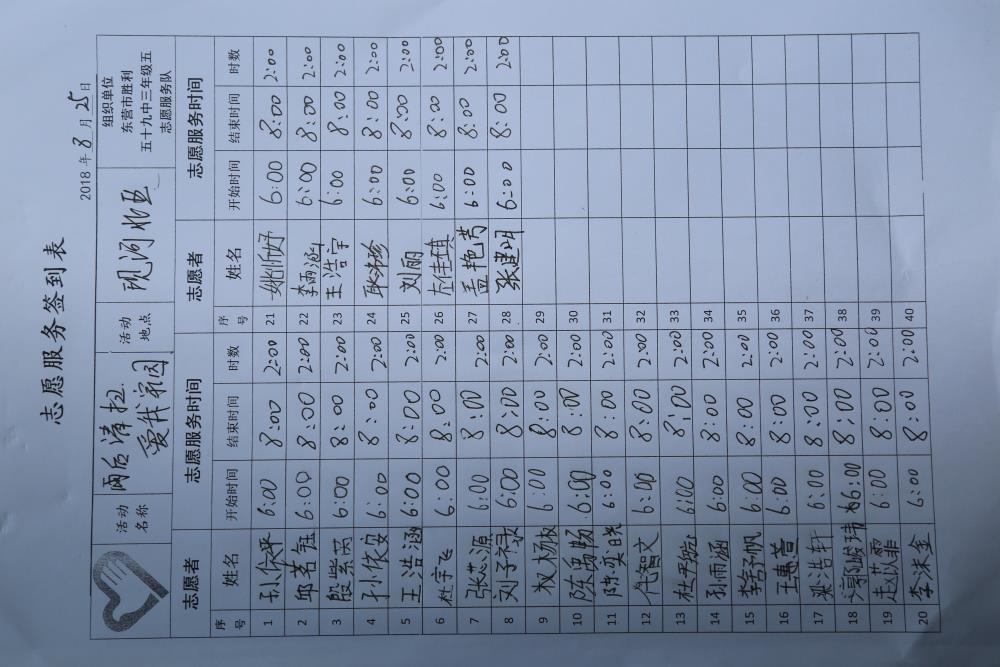 志愿服务签到表
2018 年 8 月 25 日
活动名称 雨后清扫 爱我家园 活动地点 现河北区 组织单位 东营市胜利五十九中三年级五志愿服务队
志愿者 志愿服务时间 志愿者 志愿服务时间
序号 姓名 开始时间 结束时间 时数 序号 姓名 开始时间 结束时间 时数
1 6:00 8:00 2:00 21 姚忻妤 6:00 8:00 2:00
2 邱茗钰 6:00 8:00 2:00 22 李雨涵 6:00 8:00 2:00
3 殷紫芮 6:00 8:00 2:00 23 王浩宇 6:00 8:00 2:00
4 孙依安 6:00 8:00 2:00 24 6:00 8:00 2:00
5 王浩涵 6:00 8:00 2:00 25 刘丽 6:00 8:00 2:00
6 杜宇飞 6:00 8:00 2:00 26 左佳琪 6:00 8:00 2:00
7 张芯源 6:00 8:00 2:00 27 孟艳芳 6:00 8:00 2:00
8 刘子禄 6:00 8:00 2:00 28 张建明 6:00 8:00 2:00
9 6:00 8:00 2:00 29
10 陈禹畅 6:00 8:00 2:00 30
11 陈奕晓 6:00 8:00 2:00 31
12 智文 6:00 8:00 2:00 32
13 6:00 8:00 2:00 33
14 孙雨涵 6:00 8:00 2:00 34
15 李舒帆 6:00 8:00 2:00 35
16 王惠萱 6:00 8:00 2:00 36
17 梁浩轩 6:00 8:00 2:00 37
18 郭峻玮 6:00 8:00 2:00 38
19 赵苡霏 6:00 8:00 2:00 39
20 李沫金 6:00 8:00 2:00 40